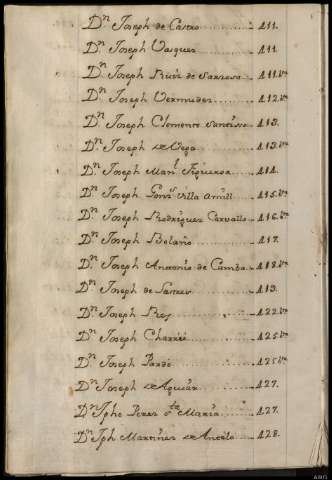 Dn Joseph de Castro 411.
Dn Joseph Vasques 411.
Dn Joseph Ruiz de 411.vto
Dn Joseph Vermudes 412.vto
Dn Joseph Clemente 413.
Dn Joseph de Vega 413.vto
Dn Joseph Manl Figueroa 414.
Dn Joseph Gonz Villa Amill 415.vto
Dn Joseph Rodriguez Carvallo 416.vto
Dn Joseph Bolaño 417.
Dn Joseph Antonio de Camba 418.vto
Dn Joseph de 419.
Dn Joseph Rey 422.vto
Dn Joseph 425vto
Dn Joseph Pardo 425vto
Dn Joseph de Aguiar 427.
Dn Jphe Perez Sta Maria 427.
Dn Jph Martines de 428.